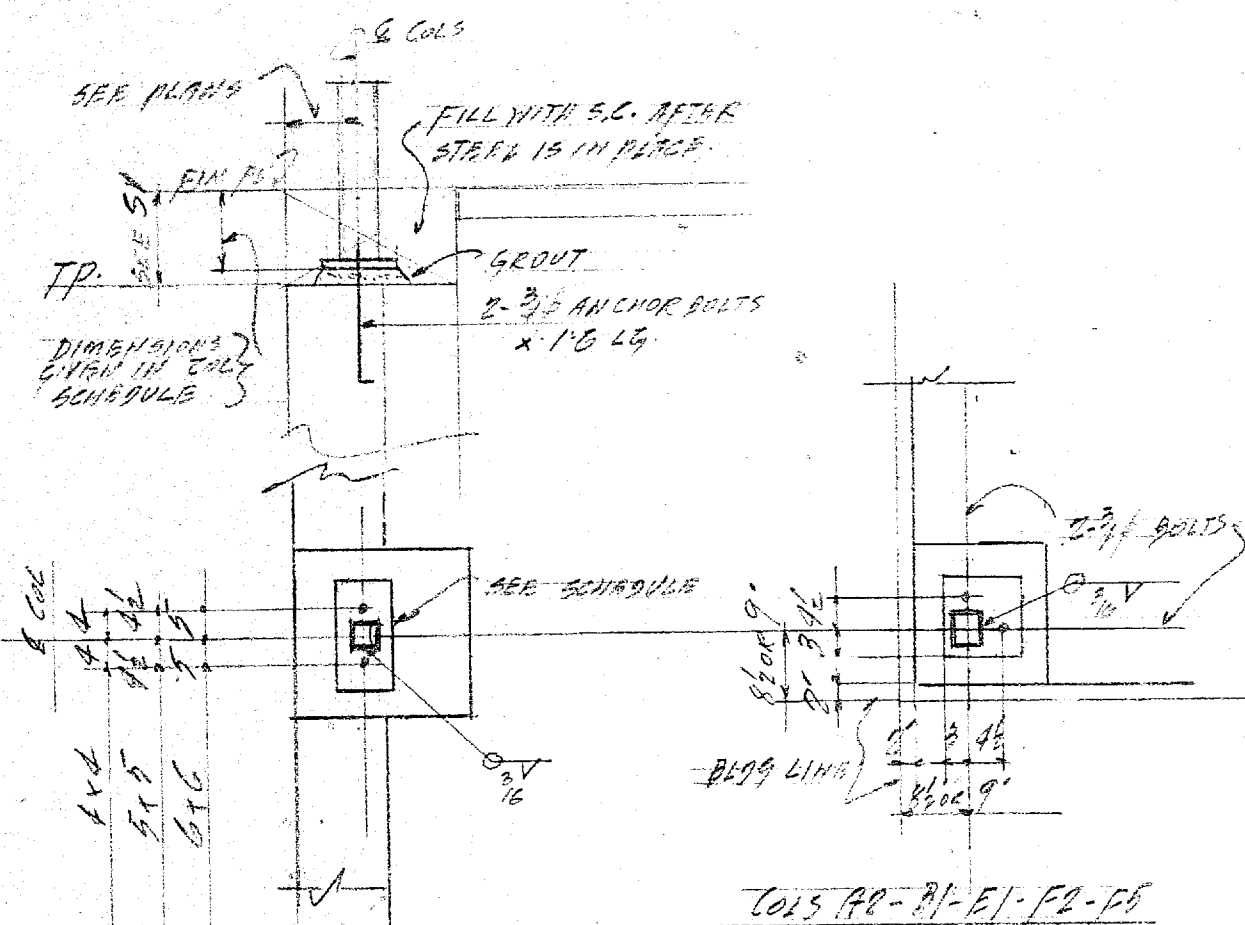 ℄ COLS
SEE PLANS
FILL WITH S.C. AFTER
STEEL IS IN PLACE.
FIN FL
SEE S1
TP.
GROUT
2-3/4 ANCHOR BOLTS
x 1'-6 LG.
DIMENSIONS
GIVEN IN COL
SCHEDULE
℄ COL
4 4
4½ 4½
5 5
4x4
5x5
6x6
SEE SCHEDULE
3/16
2-3/4 BOLTS
3/16
8½ OR 9"
2" 3 4½
BLDG LINE
2" 3 4½
8½ OR 9"
COLS A2-B1-E1-F2-F5